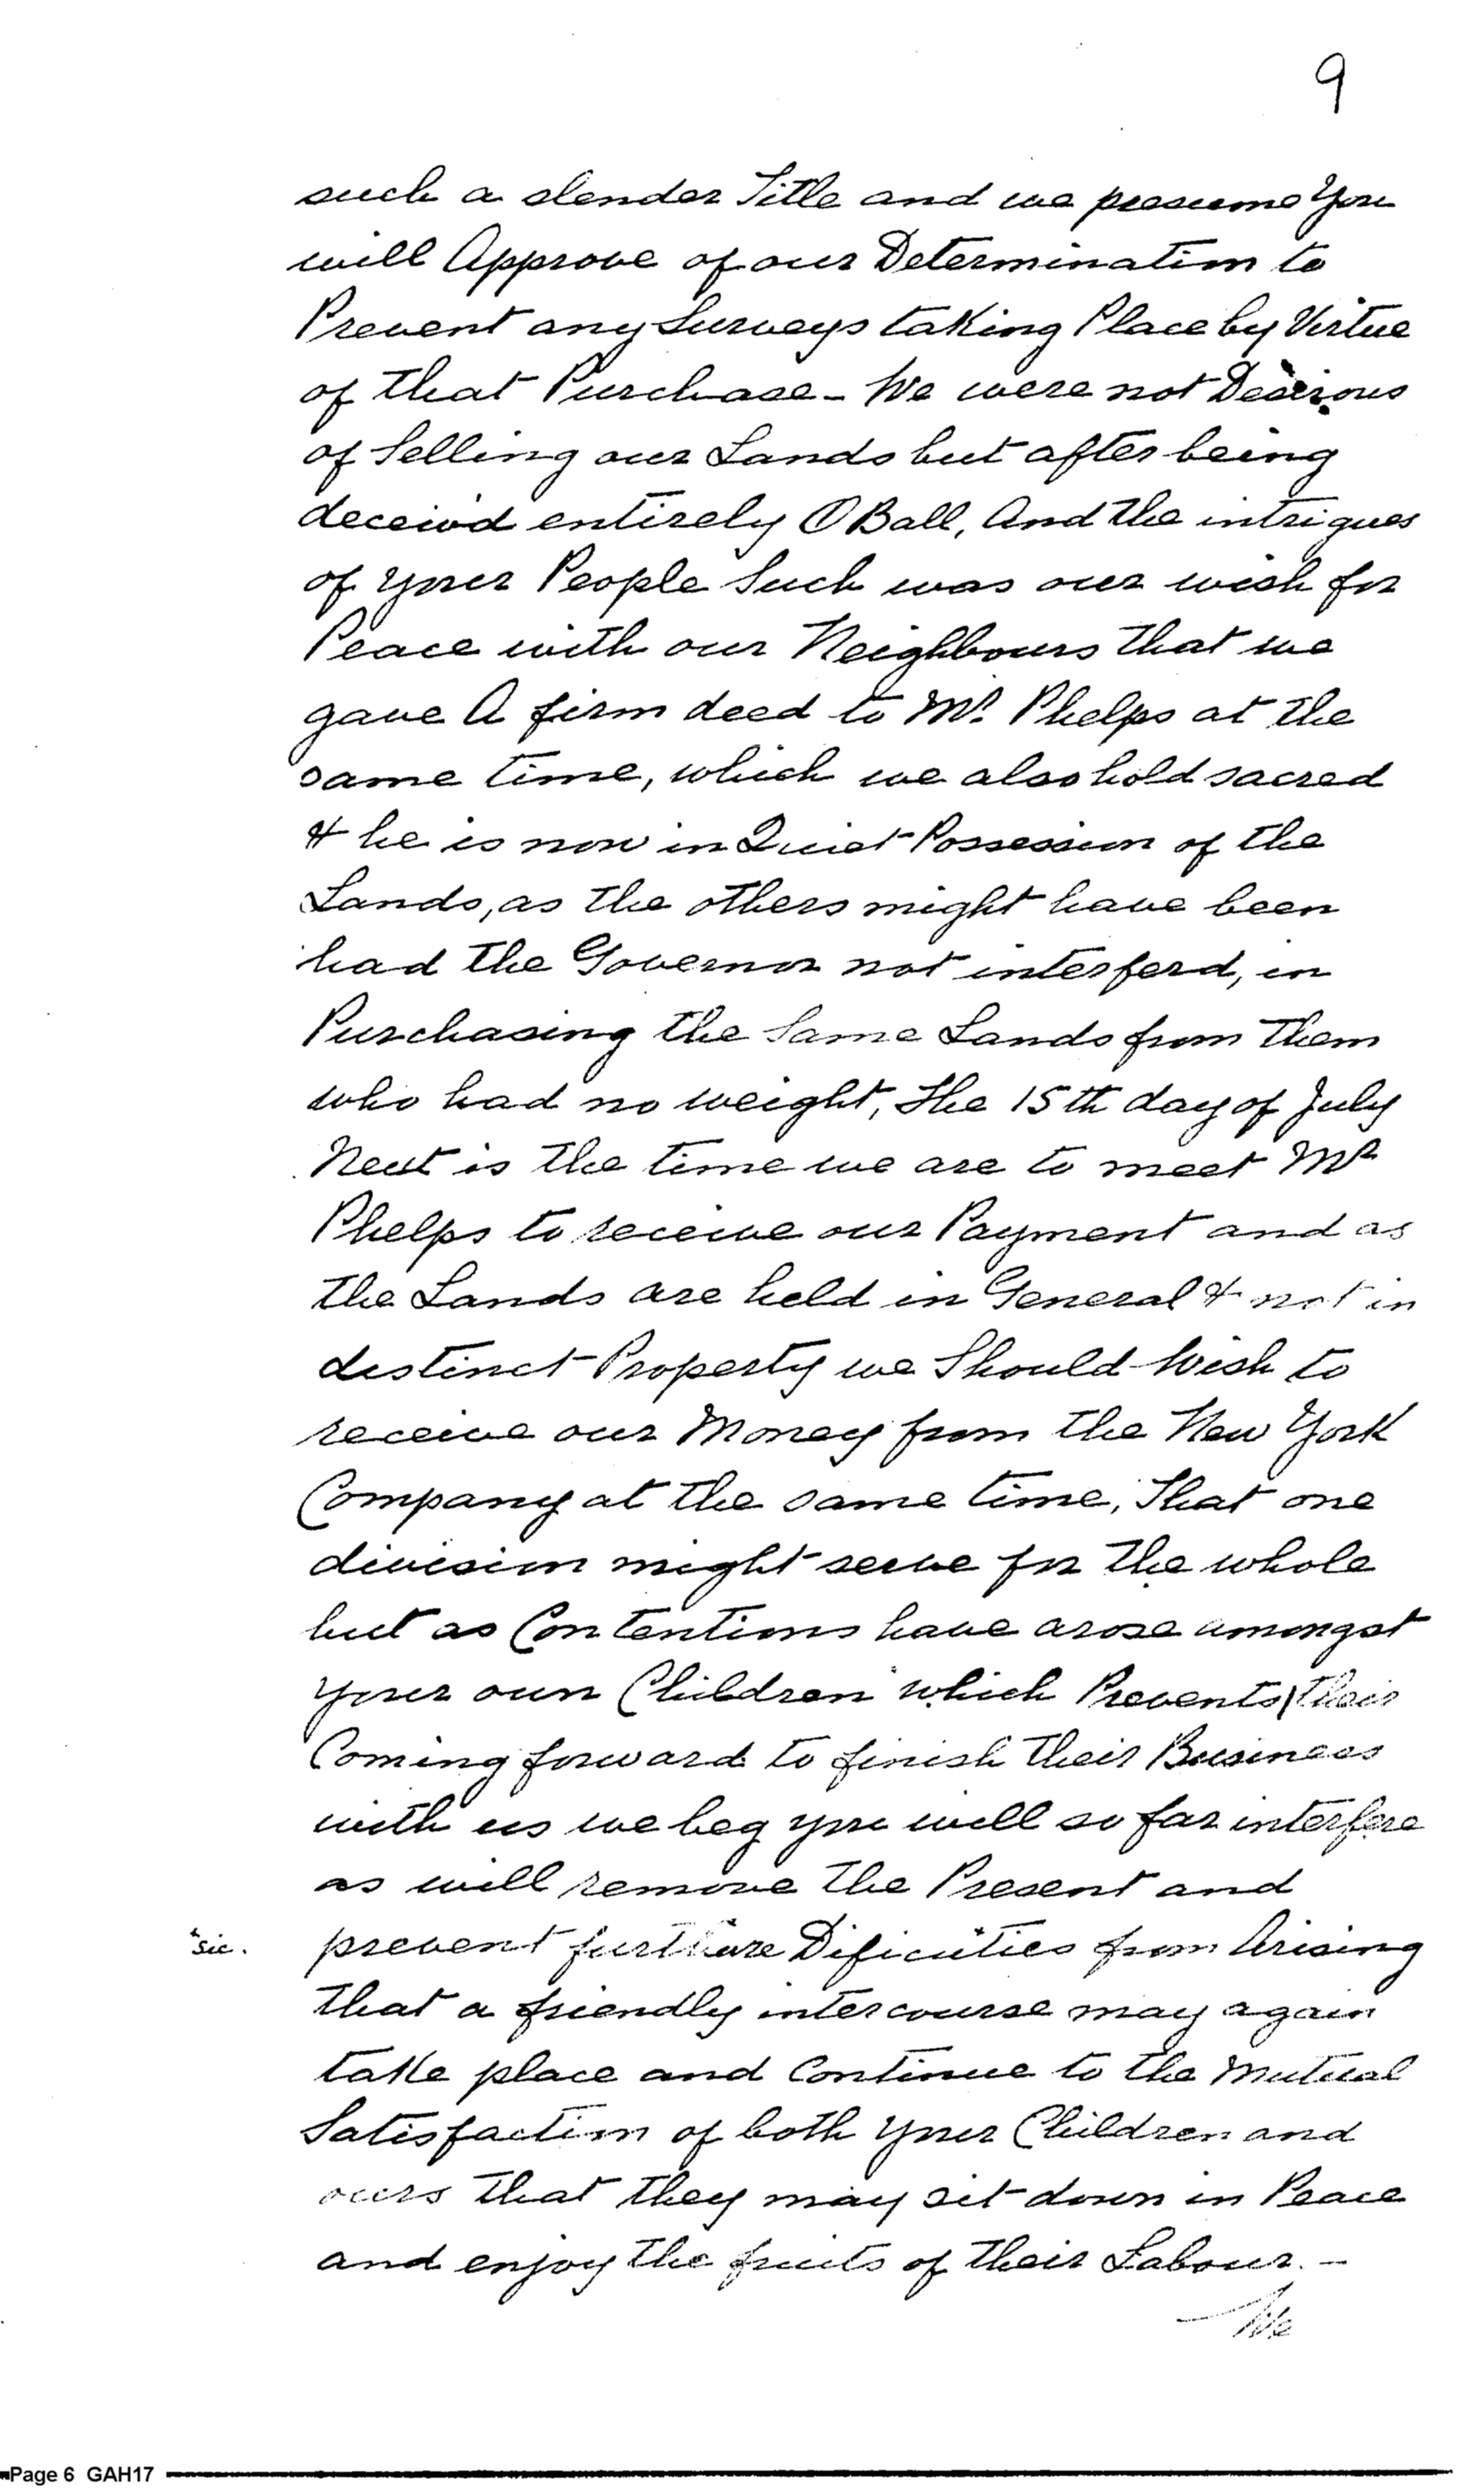 9
such a slender Title and we presume You
will Approve of our Determination to
Prevent any Surveys taking Place by Virtue
of that Purchase - We were not Desirous
of Selling our Lands but after being
deceiv'd entirely O Ball, And the intrigues
of your People Such was our wish for
Peace with our Neighbours that we
gave A firm deed to Mr. Phelps at the
same time, which we also hold sacred
& he is now in Quiet Possession of the
Lands, as the others might have been
had the Governor not interferd, in
Purchasing the Same Lands from them
who had no weight, The 15th day of July
Next is the time we are to meet Mr
Phelps to receive our Payment and as
the Lands are held in General & not in
distinct Property we Should Wish to
receive our Money from the New York
Company at the same time, That one
division might serve for the whole
but as Contentions have arose amongst
your own Children which Prevents their
Coming forward to finish their Business
with us we beg you will so far interfere
as will remove the Present and
*sic. prevent furthure Dificulties from Arising
that a friendly intercourse may again
take place and Continue to the Mutual
Satisfaction of both your Children and
ours that they may sit down in Peace
and enjoy the fruits of their Labour. -
We
Page 6 GAH17